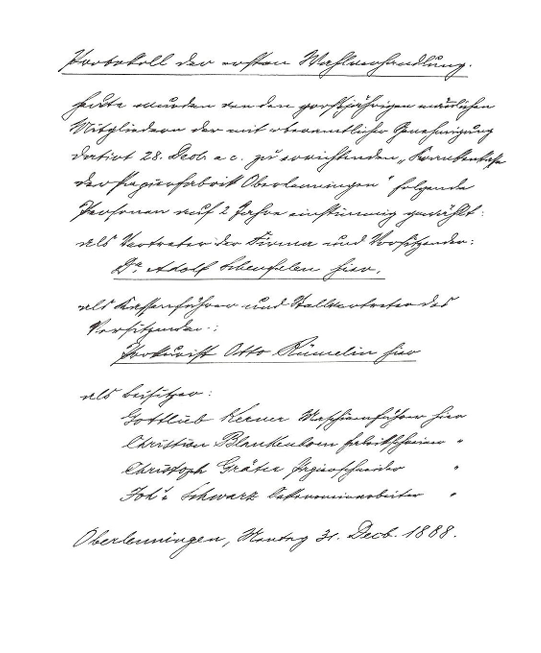 Protokoll der ersten Wahlverhandlung.
Heute wurden von den großjährigen männlichen
Mitgliedern der mit oberamtlicher Genehmigung
datirt 28. Decb. a. c. zu errichtenden „Krankenkasse
der Papierfabrik Oberlenningen" folgende
Personen auf 2 Jahre einstimmig gewählt:
als Vertreter der Firma und Vorsitzender:
Dr. Adolf Scheufelen hier.
als Kassenführer und Stellvertreter des
Vorsitzenden:
Prokurist Otto Rümelin hier
als Beisitzer:
Gottlieb Kerner Maschienführer hier
Christian Blankenhorn "
Christoph Gräter Papierschneider "
Joh's Schwarz Oekonomiearbeiter "
Oberlenningen, Montag 31. Decb. 1888.